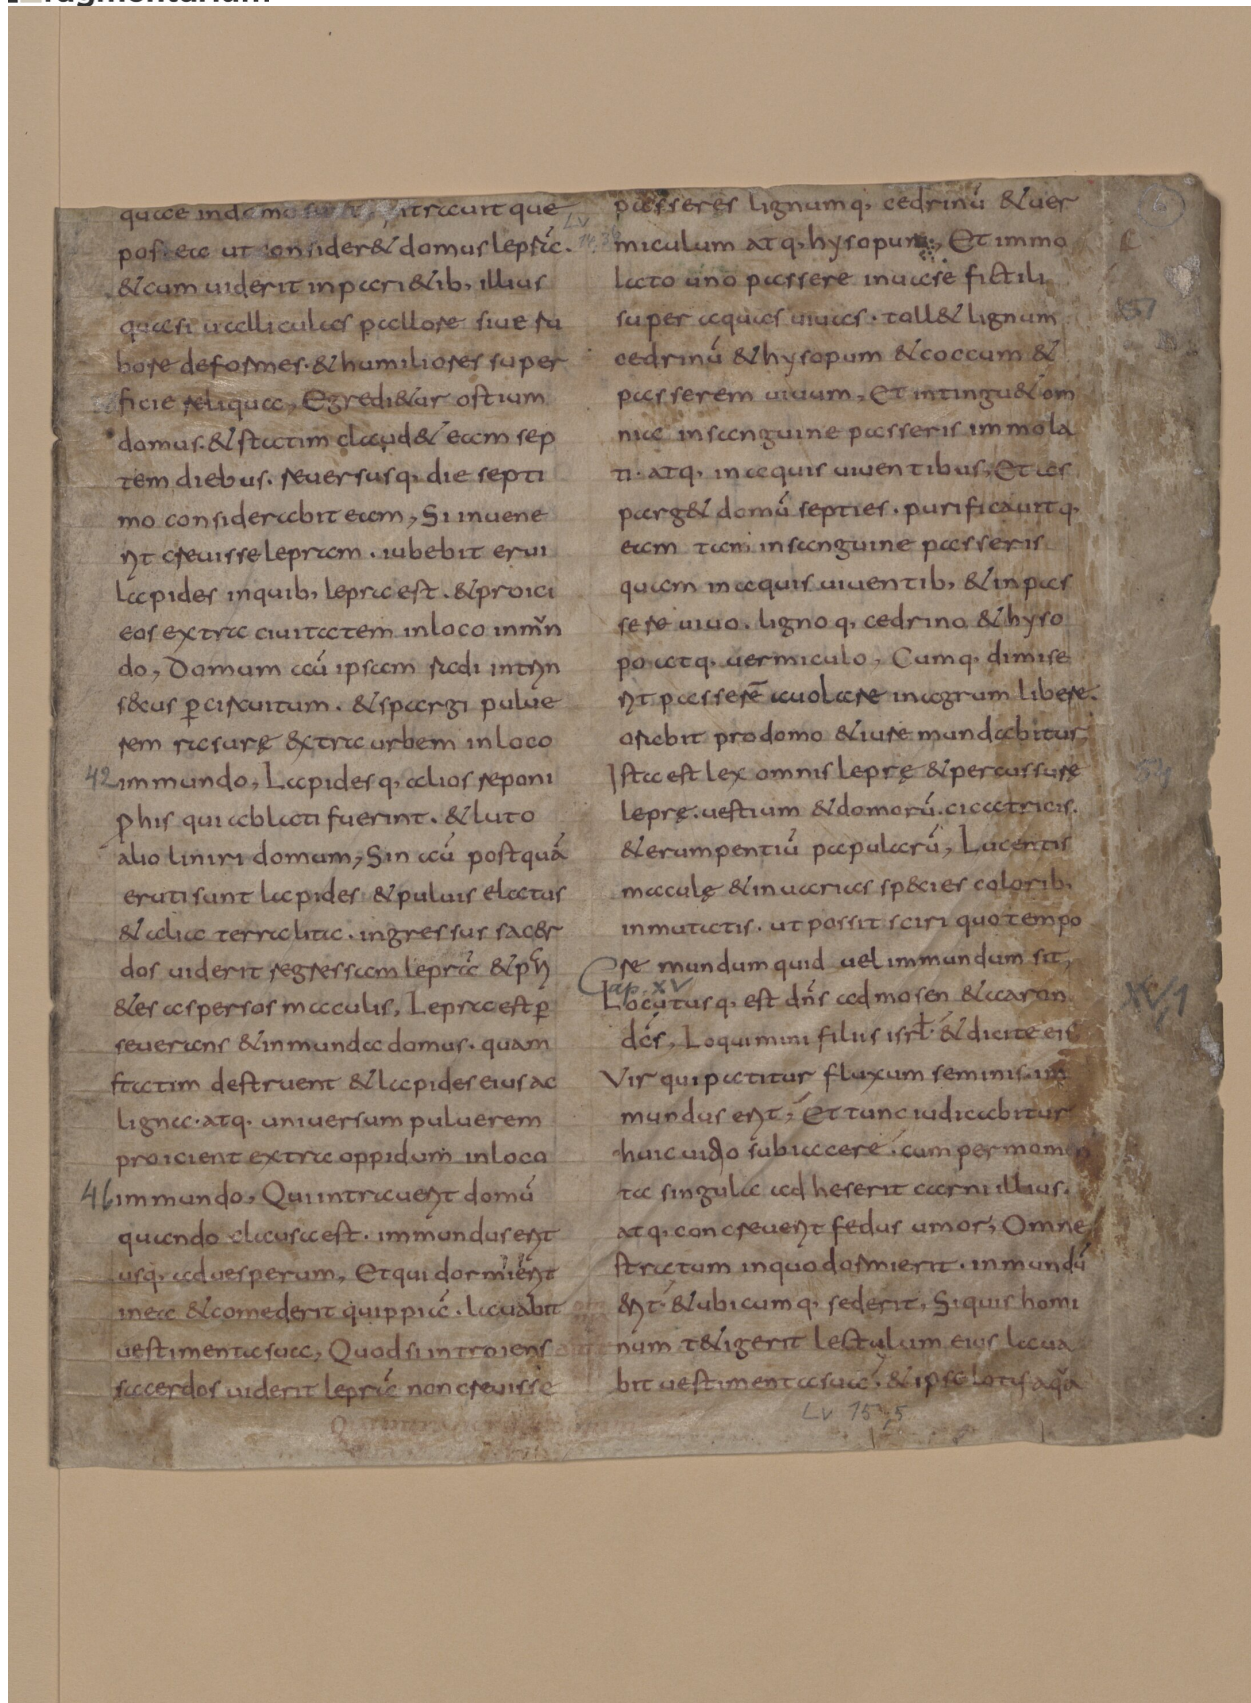 quae in domo sunt, intrauit que
postea ut consideret domus leprã.
& cum uiderit inparietib; illius
quasi ualliculas pallore siue ru
bore deformes. & humiliores super
ficie reliqua, Egredietur ostium
domus. & statim claudet eam sep
tem diebus. reuersusq; die septi
mo considerabit eam, Si inuene
rit creuisse lepram. iubebit erui
lapides inquib; lepra est. & proici
eos extra ciuitatem inloco inmun
do, Domum aũ ipsam radi intrin
secus ꝑ circuitum. & spargi pulue
rem rasurę extra urbem inloco
42 immundo, Lapidesq; alios reponi
ꝓ his qui ablati fuerint. & luto
alio liniri domum, Sin aũ postquã
eruti sunt lapides & puluis elatus
& alia terra lita. ingressus sacer
dos uiderit regressam leprã & pari
& es aspersos maculis, Lepra est ꝑ
seuerans & inmunda domus. quam
statim destruent & lapides eius ac
ligna. atq; uniuersum puluerem
proicient extra oppidum inloco
46 immundo, Qui intrauerit domũ
quando clausa est. immundus erit
usq; ad uesperum, Et qui dormierit
in ea & comederit quippiã. lauabit
uestimenta sua, Quod si introiens
sacerdos uiderit leprã non creuisse
passeres lignumq; cedrinũ & uer
miculum atq; hysopum, Et immo
lato uno passere inuase fictili
super aquas uiuas. tollet lignum
cedrinũ & hysopum & coccum &
passerem uiuum, Et intinguet om
nia insanguine passeris immola
ti. atq; in aquis uiuentibus, Et as
parget domũ septies. purificauitq;
eam tam insanguine passeris
quam in aquis uiuentib; & in pas
sere uiuo. lignoq; cedrino & hyso
po atq; uermiculo, Cumq; dimise
rit passerẽ auolare inagrum libere.
orabit prodomo & iure mundabitur,
Ista est lex omnis leprę & percussurę
leprę. uestium & domorũ. cicatricis.
& erumpentiũ papularũ, Lucentis
maculę & inuarias species colorib;
inmutatis. ut possit sciri quo tempo
re mundum quid uel immundum sit,
Cap. XV
Locutusq; est dñs ad mosen & aaron
dc̃s, Loquimini filiis isrł. & dicite eis
Vir qui patitur fluxum seminis. im
mundus erit, Et tunc iudicabitur
huic uitio subiacere. cum per momen
ta singula ad heserit carni illius.
atq; concreuerit fedus umor, Omne
stratum inquo dormierit. inmundũ
erit. & ubicumq; sederit, Siquis homi
num tetigerit lectulum eius laua
bit uestimenta sua. & ipse lotus aqua
Lv 15,5
XV,1